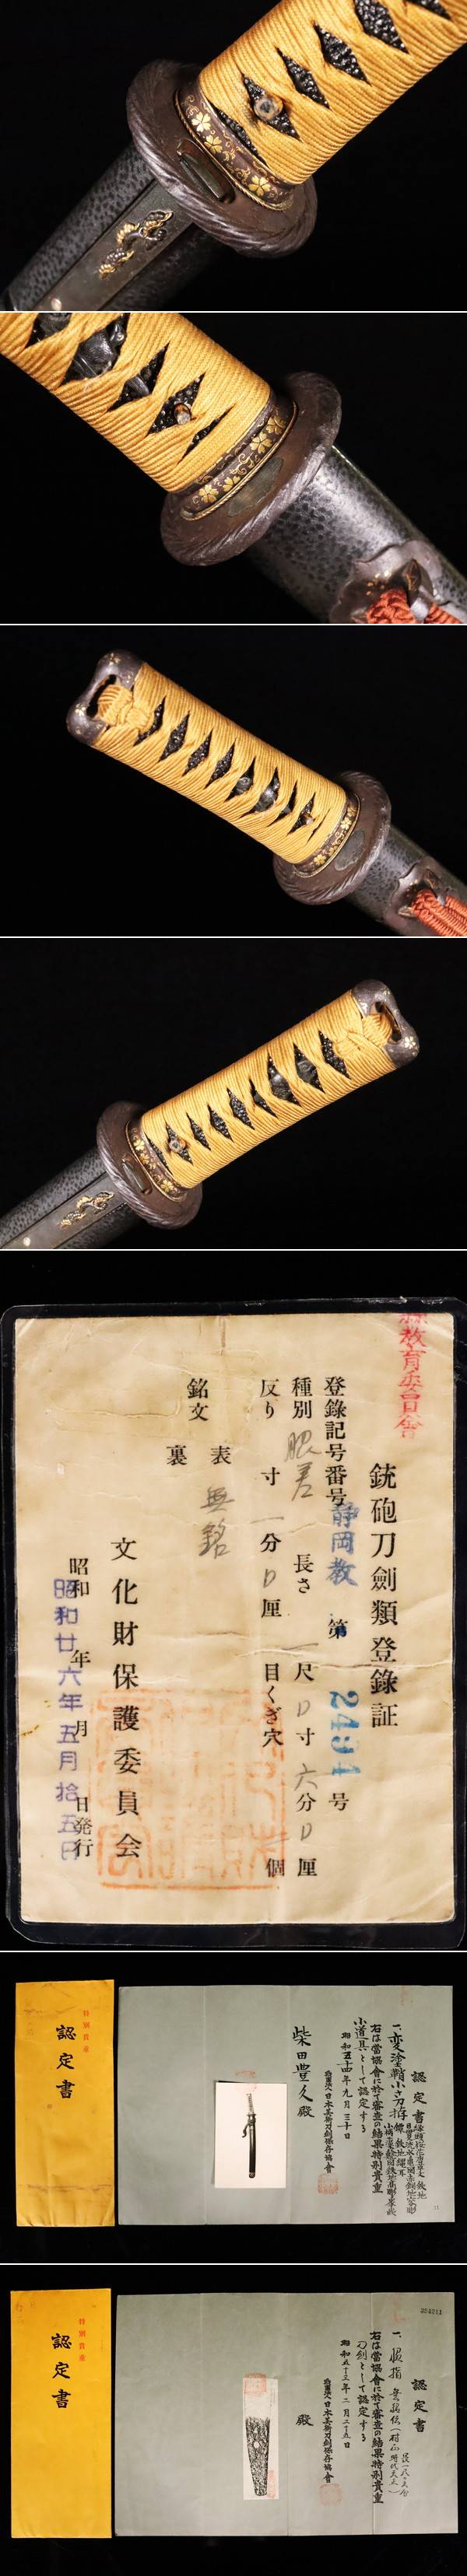 教育委員会
銃砲刀劍類登錄証
登錄記号番号 静岡教 第 2494 号
種別 脇差 長さ 一尺 0寸 六分 0厘
反り 寸 一分 0厘 目くぎ穴 個
銘文 表 無銘
裏
文化財保護委員会
昭和 年 月 日発行
昭和廿六年五月拾五日
特別貴重
認定書
認定書
一、変塗鞘小さ刀拵
右は當協會に於て審査の結果特別貴重
小道具として認定する
昭和五十四年九月三十日
財團法人日本美術刀劍保存協會
柴田豊久殿
特別貴重
認定書
認定書
一、脇指 無銘 伝
右は當協會に於て審査の結果特別貴重
刀劍として認定する
昭和五十三年二月二十五日
財團法人日本美術刀劍保存協會
殿